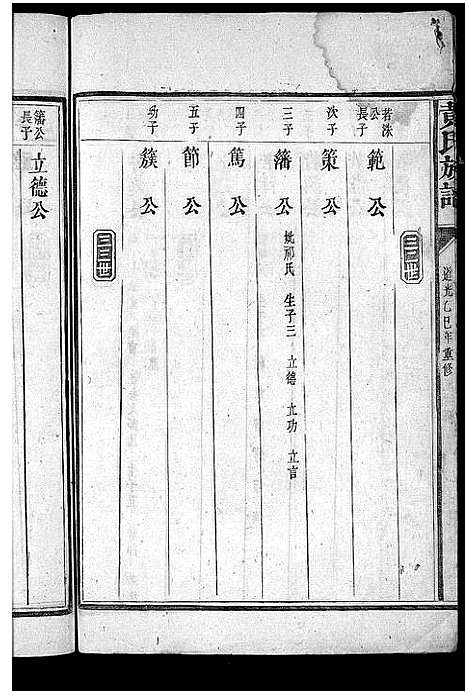 黃氏族譜
道光乙巳年重修
三二世
若洙公長子 範公
次子 策公
三子 藩公 妣祁氏 生子三 立德 立功 立言
四子 篤公
五子 節公
幼子 簇公
三三世
藩公長子 立德公